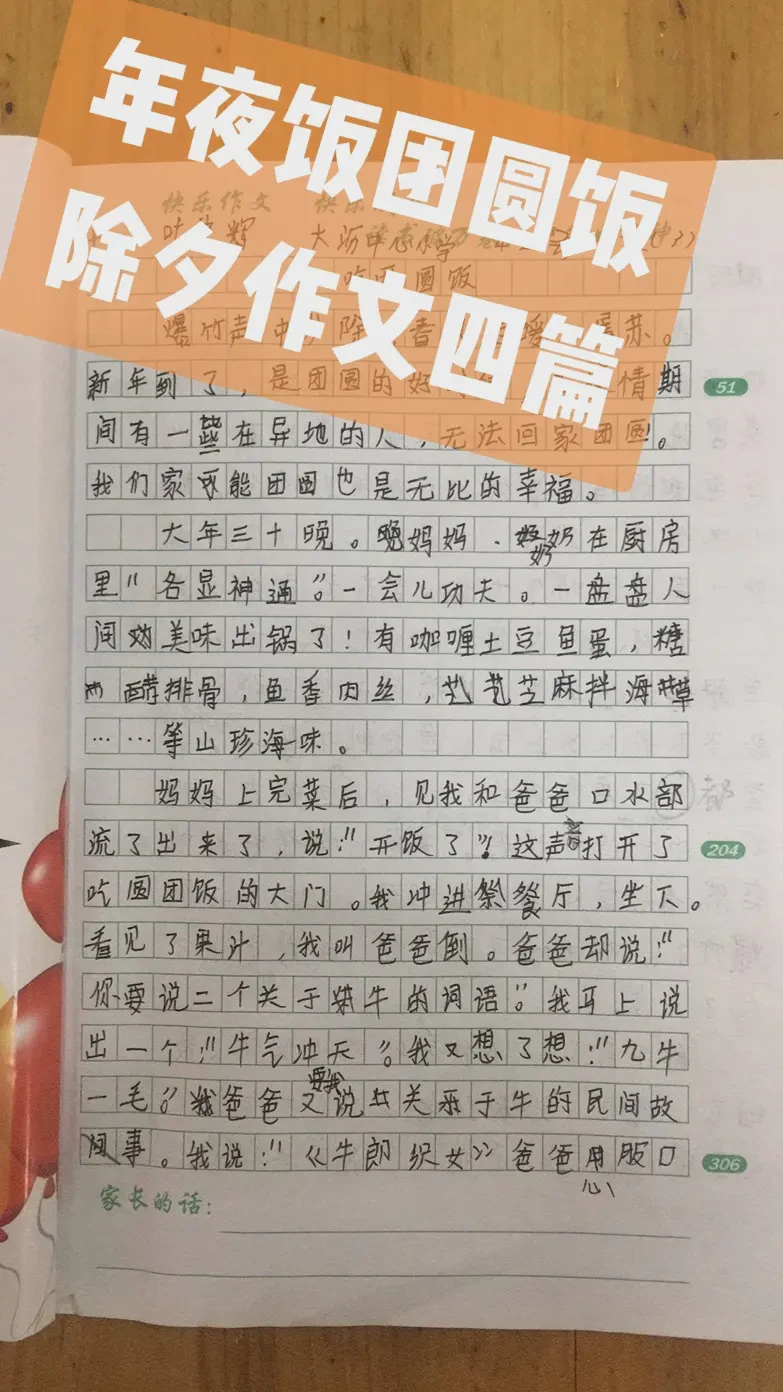 年夜饭团圆饭
除夕作文四篇
快乐作文 快乐
大沥中心小学
吃团圆饭
爆竹声中 除 春 暖 屠苏。
新年到了，是团圆的好 情期
51
间有一些在异地的人，无法回家团圆。
我们家可能团圆也是无比的幸福。
大年三十晚。晚妈妈．奶奶在厨房
里"各显神通"。一会儿功夫。一盘盘人
间美味出锅了！有咖喱土豆鱼蛋，糖
醋排骨，鱼香肉丝，芝麻拌海草
……等山珍海味。
妈妈上完菜后，见我和爸爸口水部
都
流了出来了，说："开饭了"！这声音打开了
204
吃圆团饭的大门。我冲进餐厅，坐下。
看见了果汁，我叫爸爸倒。爸爸却说："
你要说二个关于牛的词语"。我马上说
出一个："牛气冲天"。我又想了想："九牛
一毛"。爸爸又要我说出关于牛的民间故
事。我说："《牛郎织女》爸爸心服口
306
家长的话：